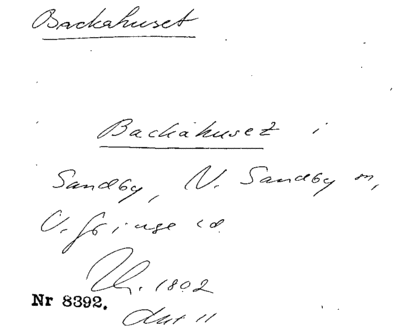 Backahuset
Backahuset i
Sandby, N. Sandby sn,
V. Göinge hd.
1802
Nr 8392.